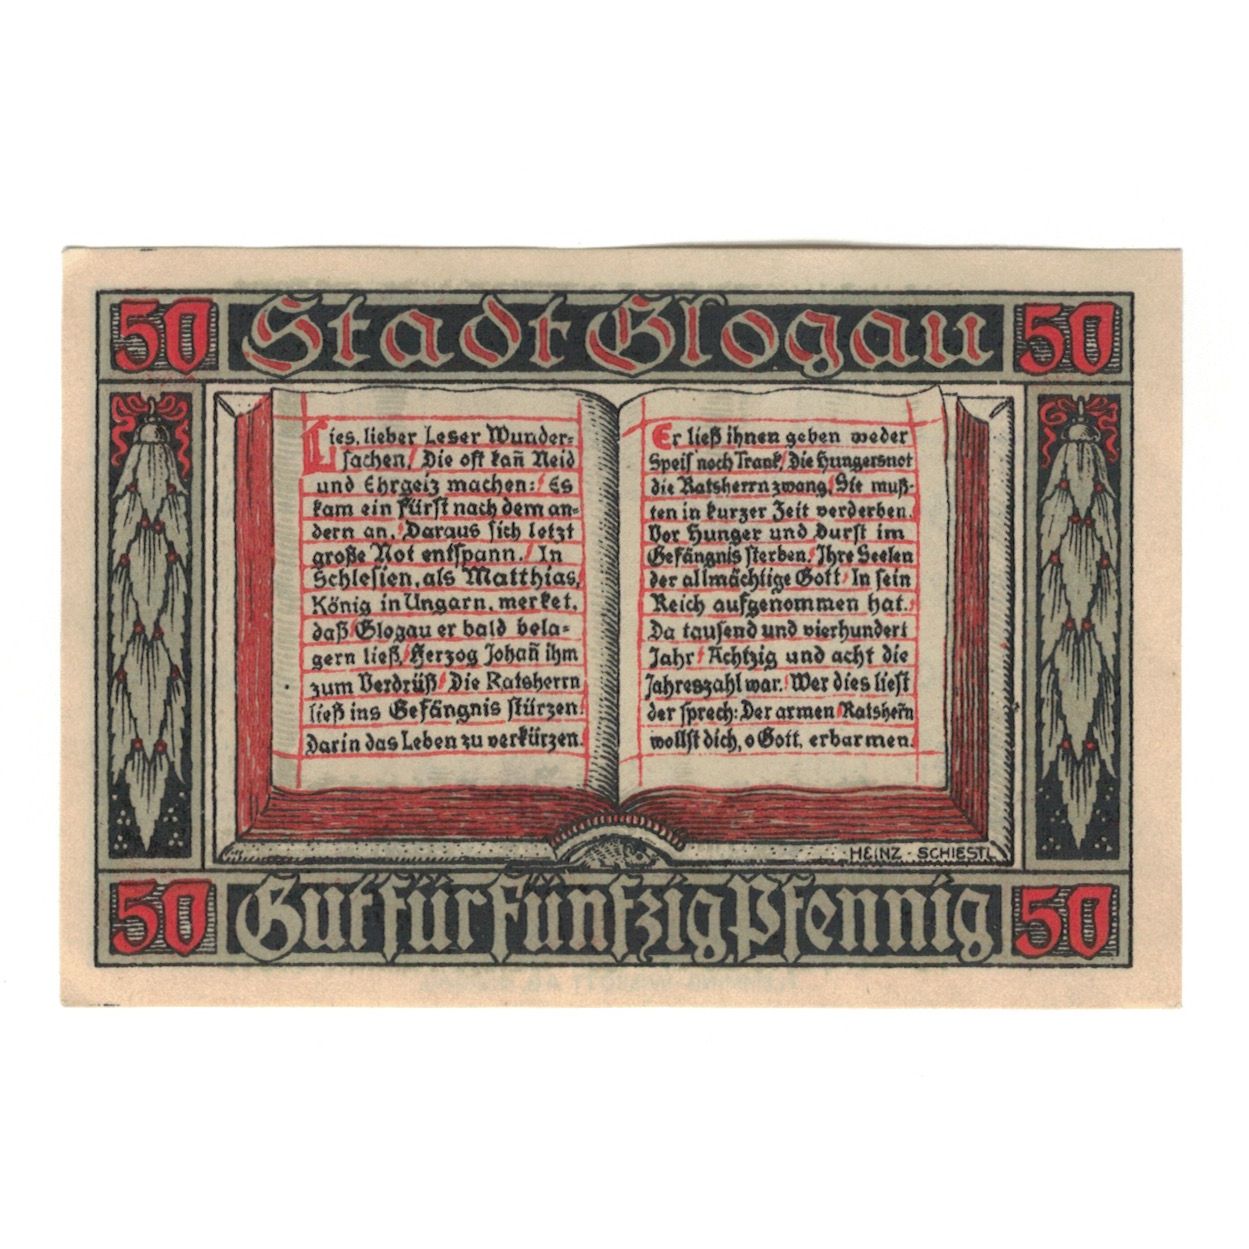 50 Stadt Glogau 50
Lies, lieber Leser Wunder=
sachen, / Die oft kan̄ Neid
und Ehrgeiz machen: / Es
kam ein Fürst nach dem an=
dern an, / Daraus sich letzt
große Not entspann. / In
Schlesien, als Matthias,
König in Ungarn, merket,
daß / Glogau er bald bela=
gern ließ, / Herzog Johan̄ ihm
zum Verdrüß / Die Ratsherrn
ließ ins Gefängnis stürzen /
Darin das Leben zu verkürzen.
Er ließ ihnen geben weder
Speis noch Trank, / Die Hungersnot
die Ratsherrn zwang, / Sie muß=
ten in kurzer Zeit verderben, /
Vor Hunger und Durst im
Gefängnis sterben. / Ihre Seelen
der allmächtige Gott / In sein
Reich aufgenommen hat. /
Da tausend und vierhundert
Jahr / Achtzig und acht die
Jahreszahl war. / Wer dies liest
der sprech: Der armen / Ratsher̄n
wollst dich, o Gott, erbarmen.
HEINZ - SCHIESTL
50 Gut für fünfzig Pfennig 50